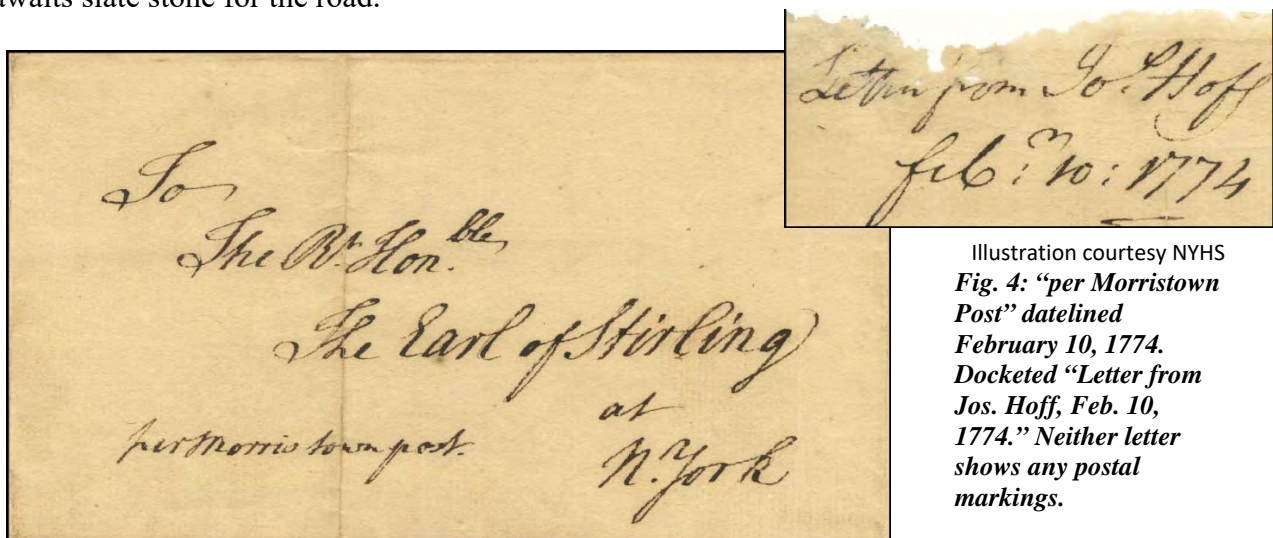 awaits slate stone for the road.
To
The Rt. Hon.ble
The Earl of Stirling
at
N. York
per Morris town post.
Letter from Jos. Hoff
feb: 10: 1774
Illustration courtesy NYHS
Fig. 4: “per Morristown
Post” datelined
February 10, 1774.
Docketed “Letter from
Jos. Hoff, Feb. 10,
1774.” Neither letter
shows any postal
markings.